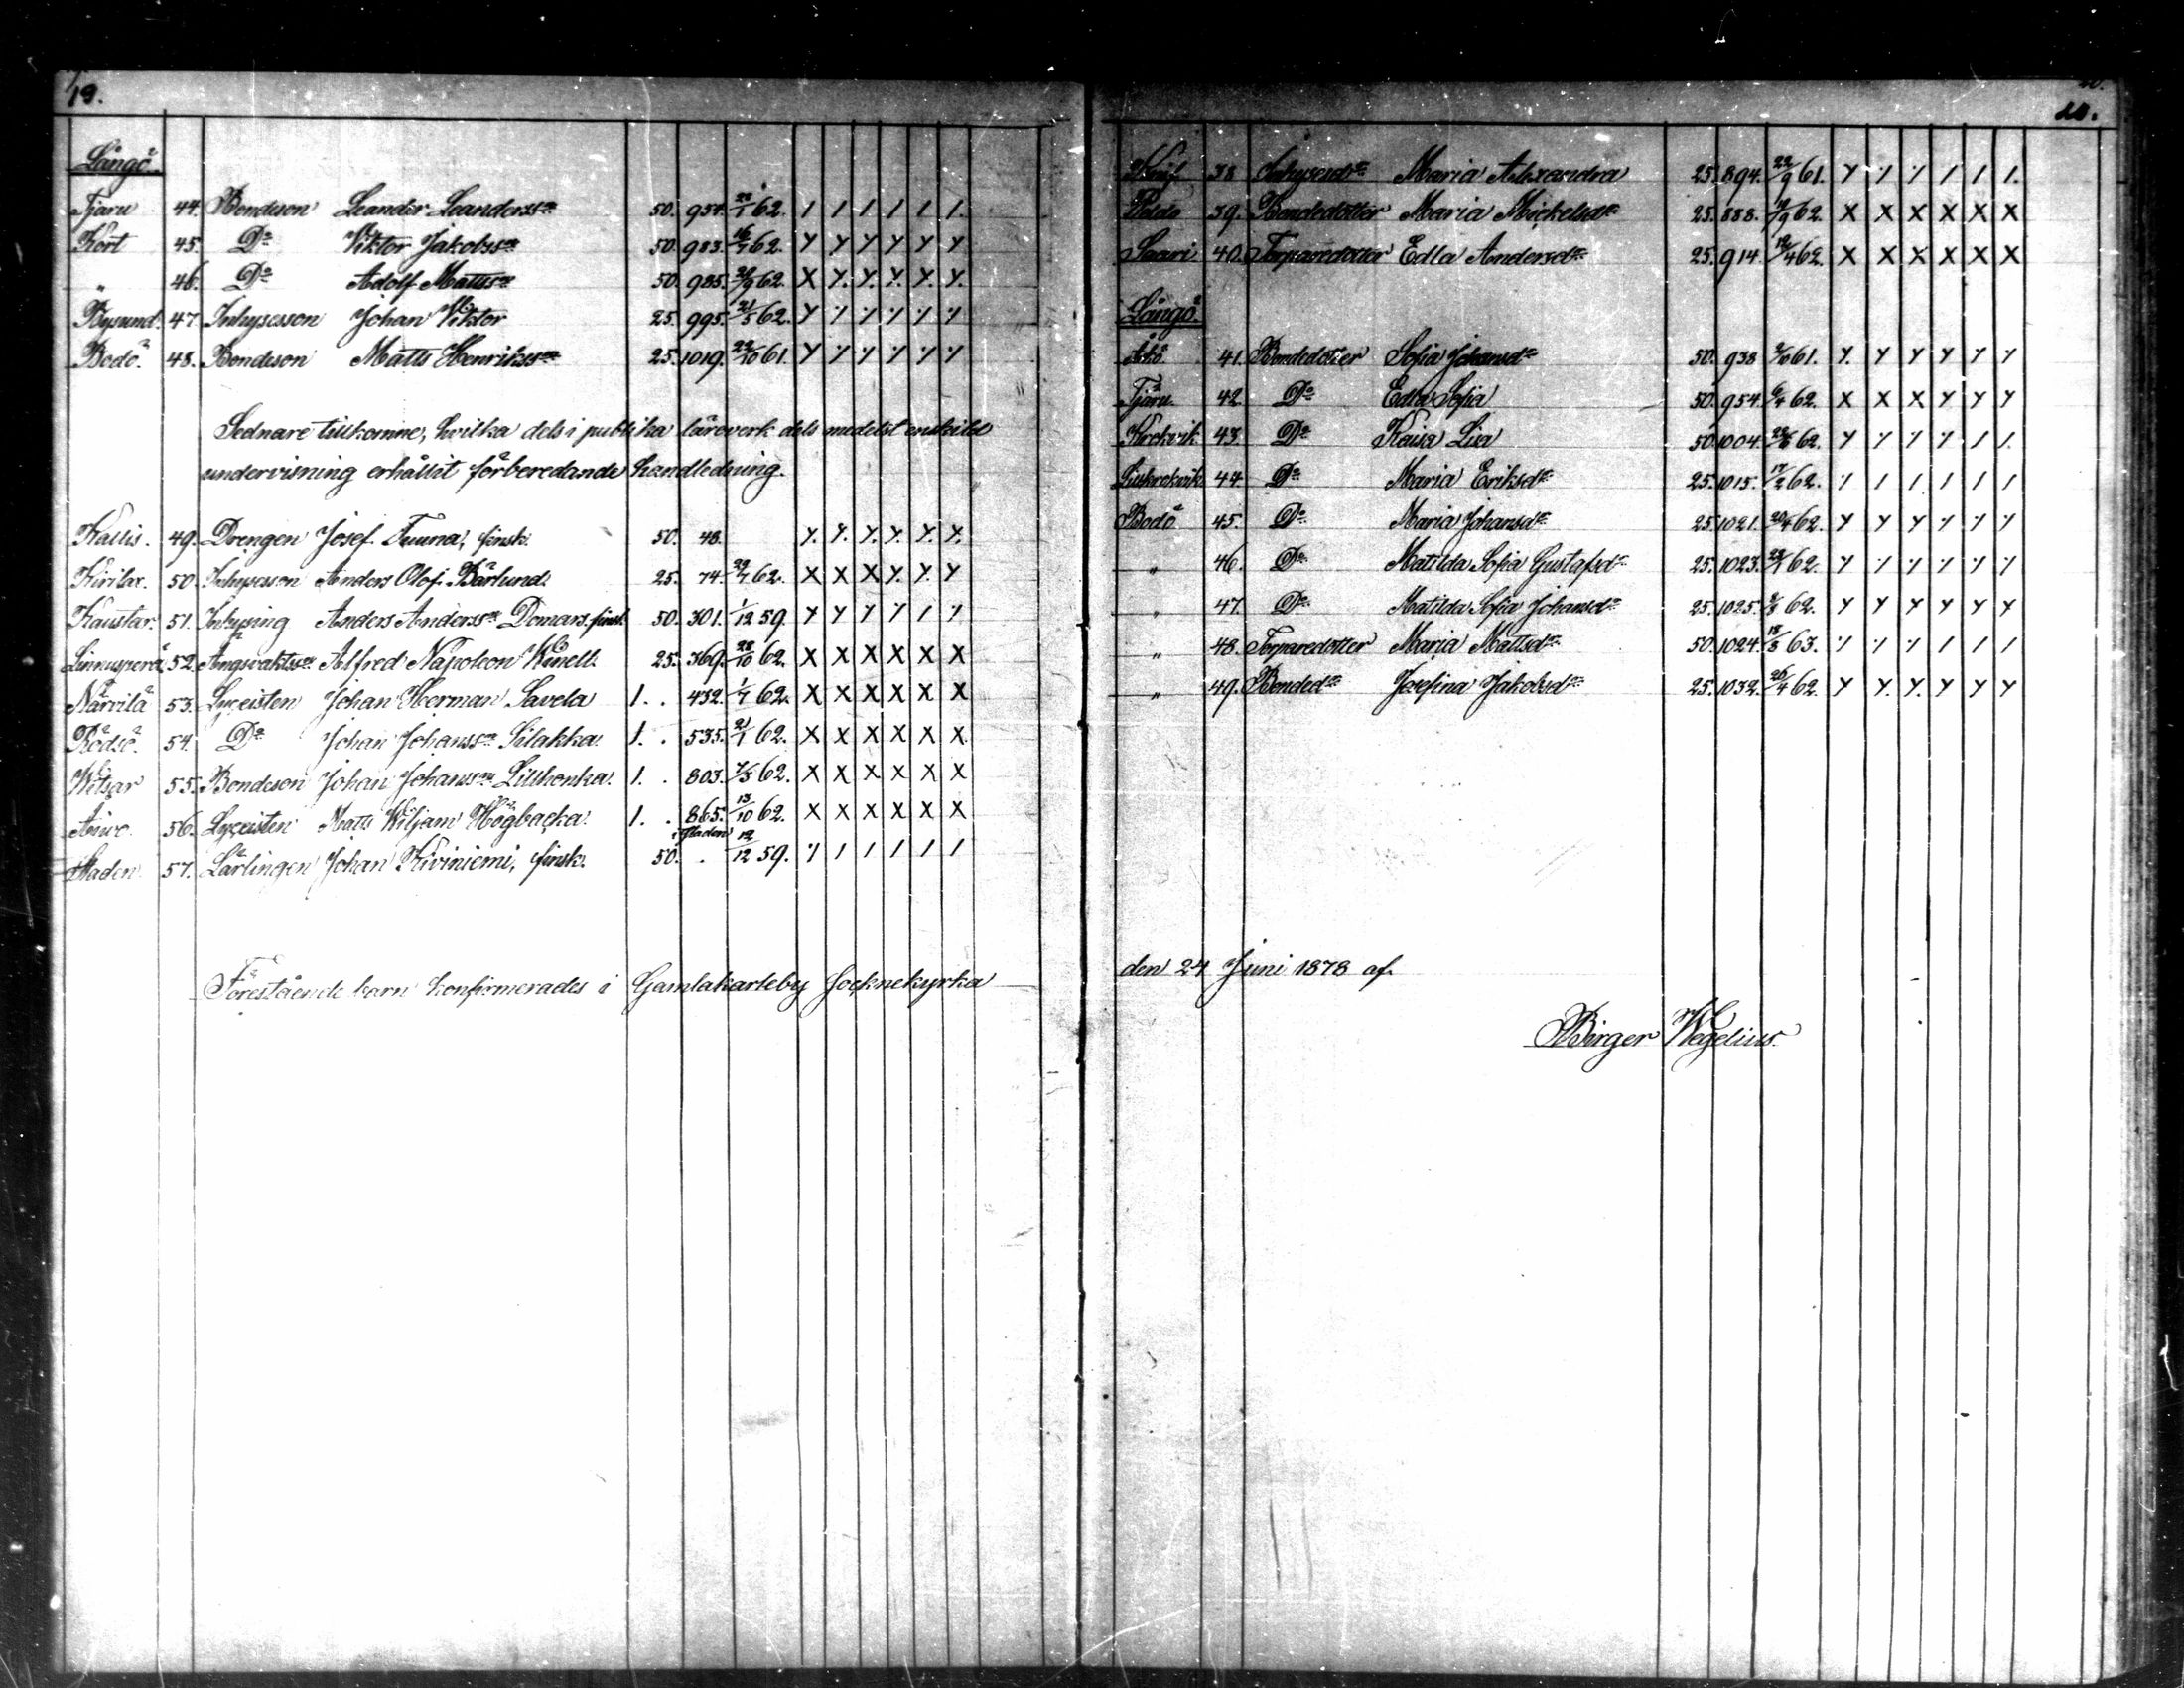 19.
Långö.
Tjäru 44. Bondeson Leander Leanderss:n 50. 954. 20/1 62. / / / / / /.
Kört 45. D:o Viktor Jakobss:n 50. 983. 16/7 62. Y Y Y Y Y Y
" 46. D:o Adolf Mattss:n 50. 985. 29/9 62. X Y. Y. Y. Y. Y.
Bysund. 47. Inhysesson Johan Viktor 25. 995. 21/5 62. Y
Bodö. 48. Bondeson Matts Henrikss:n 25. 1019. 22/10 61. Y
Sednare tillkomne, hvilka dels i publika läroverk dels medelst enskild
undervisning erhållit förberedande handledning.
Kallis. 49. Drengen Josef Tuuna, finsk. 50. 48. Y. Y. Y. Y. Y. Y.
Kirilax. 50. Inhysesson Anders Olof Bärlund. 25. 74 29/7 62. X X X Y. Y. Y
Kaustar. 51. Inhysing Anders Anderss:n Domars. finsk 50. 301. 1/12 59. Y Y
Linnusperä. 52. Ångvaktss:n Alfred Napoleon Winell. 25. 369. 28/10 62. X X X X X X
Närvilä 53. Lyceisten Johan Herman Savela 1. . 432. 1/7 62. X X X X X X
Rödsö. 54. D:o Johan Johanss:n Silakka. 1. . 535. 21/1 62. X X X X X X
Witsar 55. Bondeson Johan Johanss:n Lillhonka. 1. . 803. 7/5 62. X X X X X X
56. Lyceisten Matts Wiljam Högbacka. 1. . 865. 13/10 62. X X X X X X
Staden. 57. Lärlingen Johan Kiviniemi, finsk. 50. . i staden 12/12 59. / / / / /
Förestående barn konfirmerades i Gamlakarleby socknekyrka
20.
38 Inhysesd:r Maria Alexandra 25. 894. 22/9 61. Y / / /.
39. Bondedotter Maria Mickelsd:r 25. 888. 14/9 62. X X X X X X
Saari 40. Torparedotter Edla Andersd:r 25. 914. 12/4 62. X X X X X X
Långö.
41. Bondedotter Sofia Johansd:r 50. 938 61. Y. Y Y Y Y Y
Tjäru 42. D:o Edla Sofia 50. 954. 6/4 62. X X X Y Y Y
Krokvik 43. D:o Kaisa Lisa 50. 1004. 62. Y / /.
Lillkrokvik 44. D:o Maria Eriksd:r 25. 1015. 17/2 62. / / / / /
Bodö 45. D:o Maria Johansd:r 25. 1021. 20/4 62. Y Y Y
" 46. D:o Matilda Sofia Gustafsd:r 25. 1023. 62. Y
" 47. D:o Matilda Sofia Johansd:r 25. 1025. 62. Y Y Y Y Y Y
" 48. Torparedotter Maria Mattsd:r 50. 1024. 18/8 63. / / /
" 49. Bonded:r Josefina Jakobsd:r 25. 1032. 26/4 62. Y Y. Y. Y Y Y
den 24 Juni 1878 af.
Birger Wegelius.